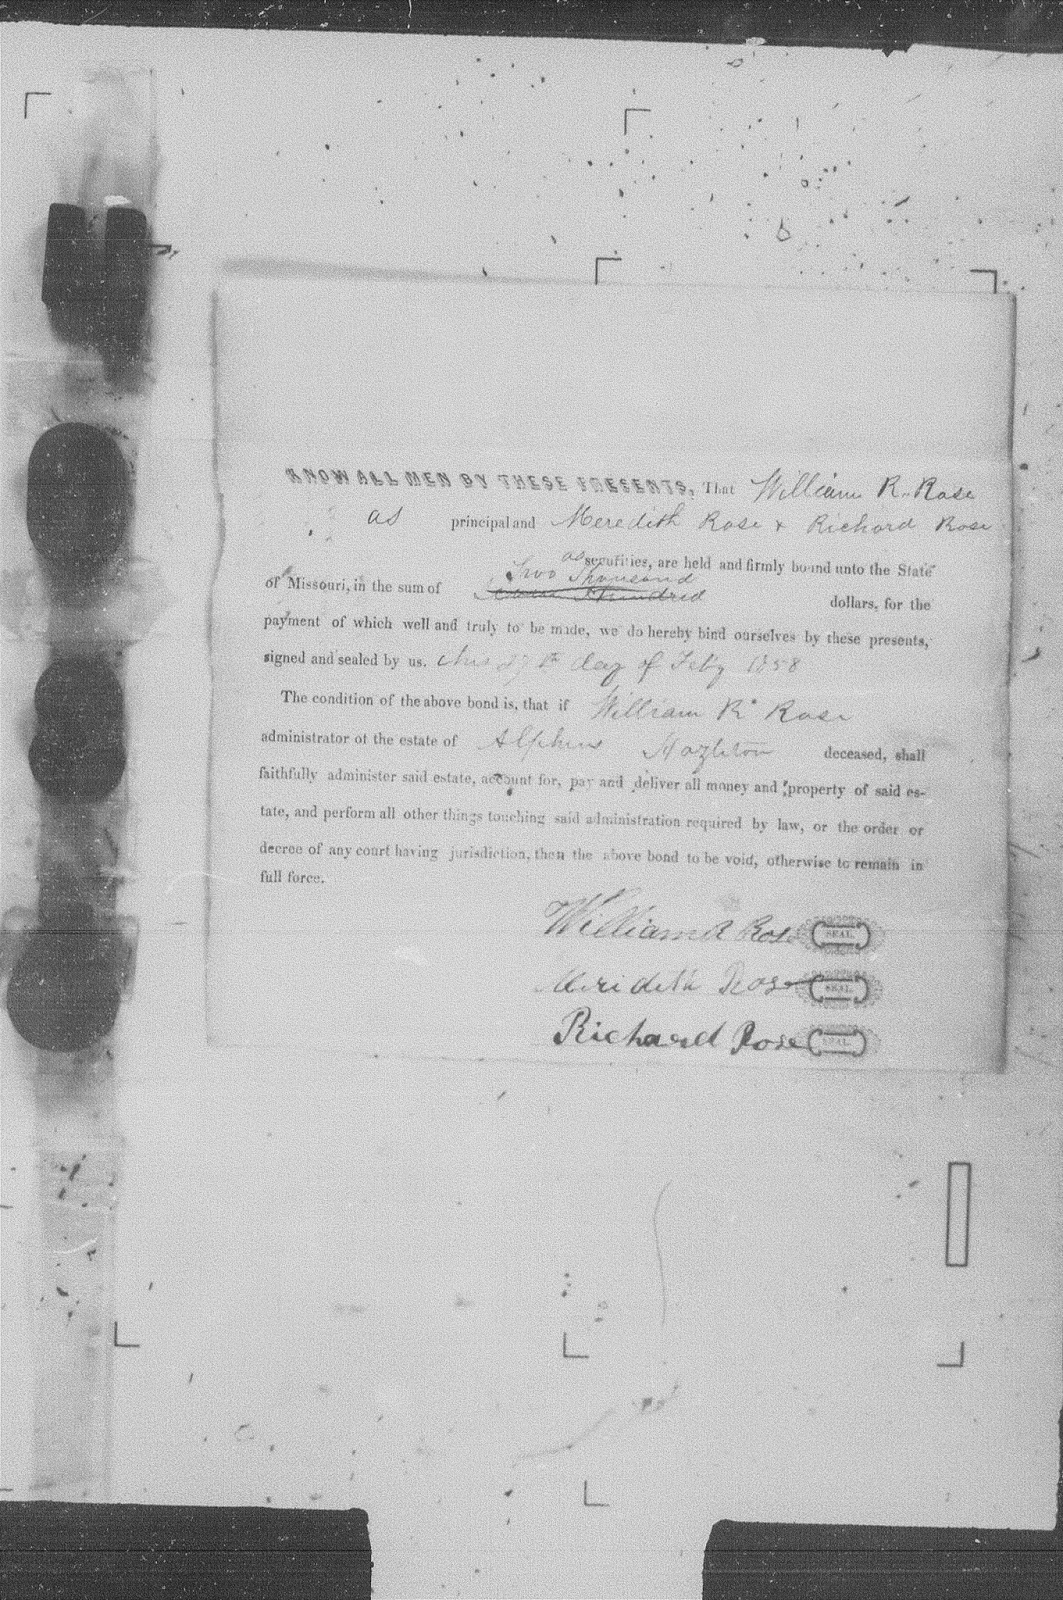 KNOW ALL MEN BY THESE PRESENTS, That William R. Rose
as principal and Meredith Rose & Richard Rose
as securities, are held and firmly bound unto the State
of Missouri, in the sum of Two Thousand Hundred dollars, for the
payment of which well and truly to be made, we do hereby bind ourselves by these presents,
signed and sealed by us. this 27th day of Feby 1858
The condition of the above bond is, that if William R. Rose
administrator of the estate of Alpheus Hazleton deceased, shall
faithfully administer said estate, account for, pay and deliver all money and property of said es-
tate, and perform all other things touching said administration required by law, or the order or
decree of any court having jurisdiction, then the above bond to be void, otherwise to remain in
full force.
William R Rose SEAL.
Merideth Rose SEAL.
Richard Rose SEAL.